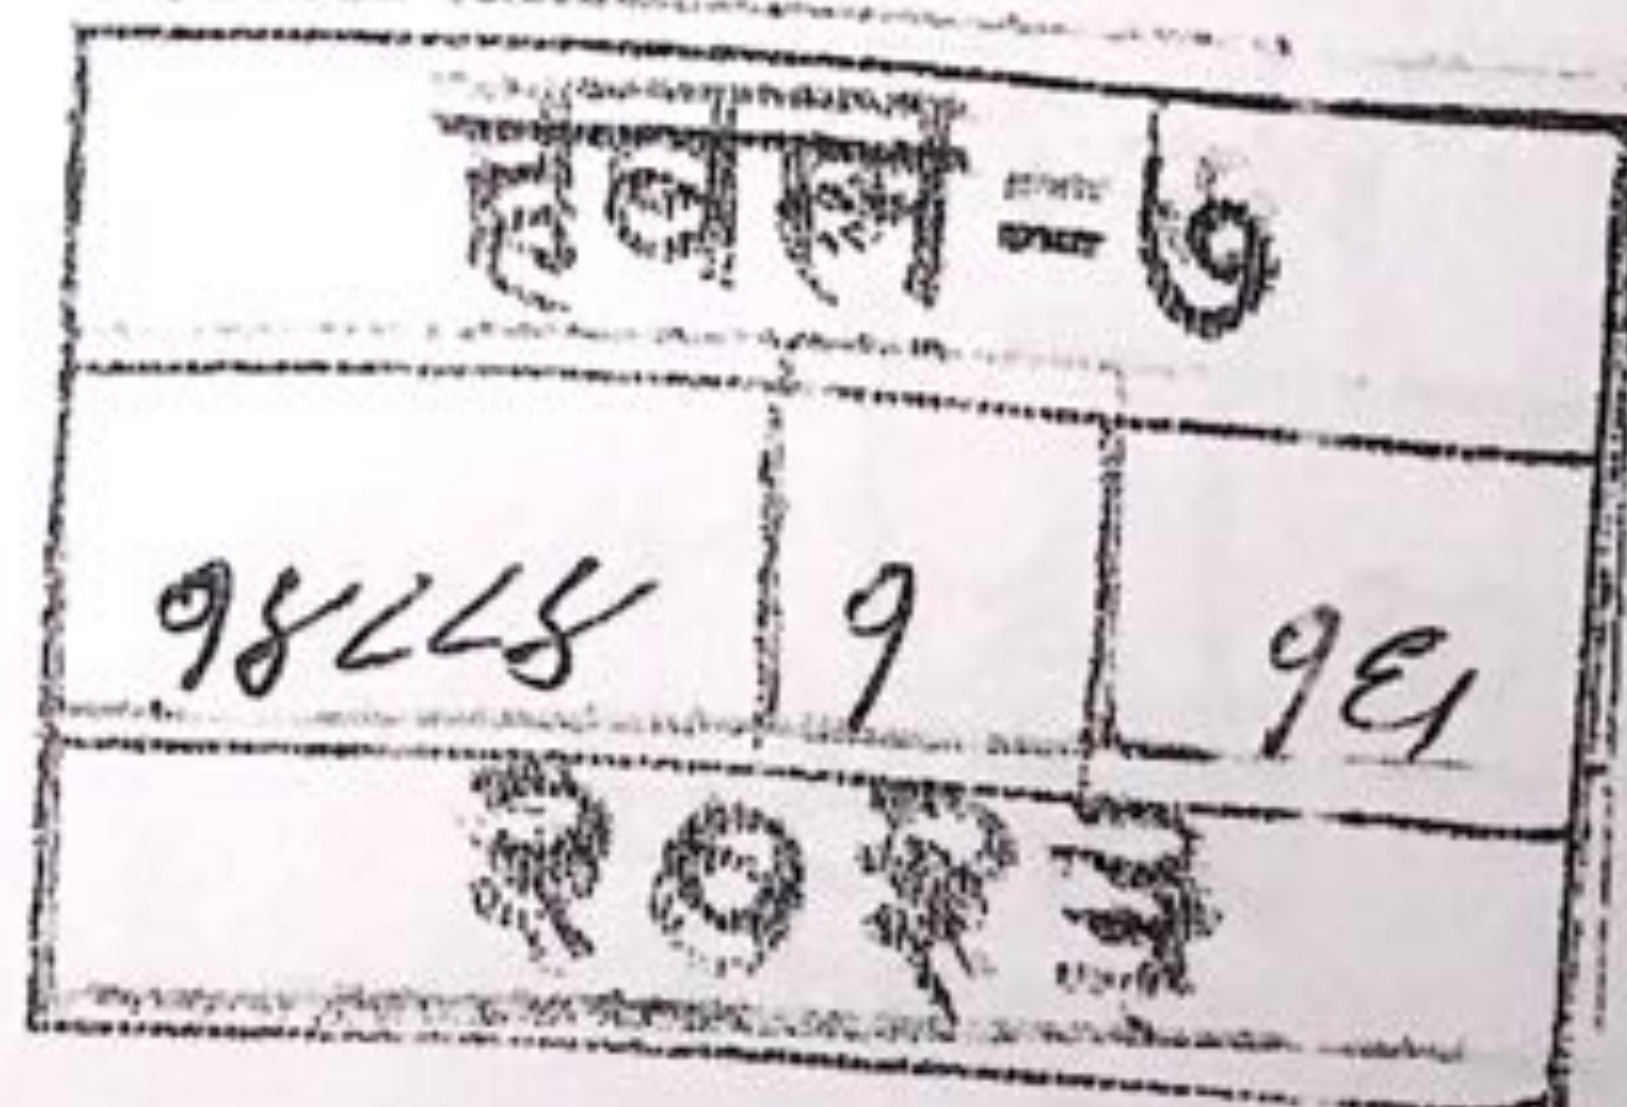 हवल - ७
१४८८४ १ १६
२०२३